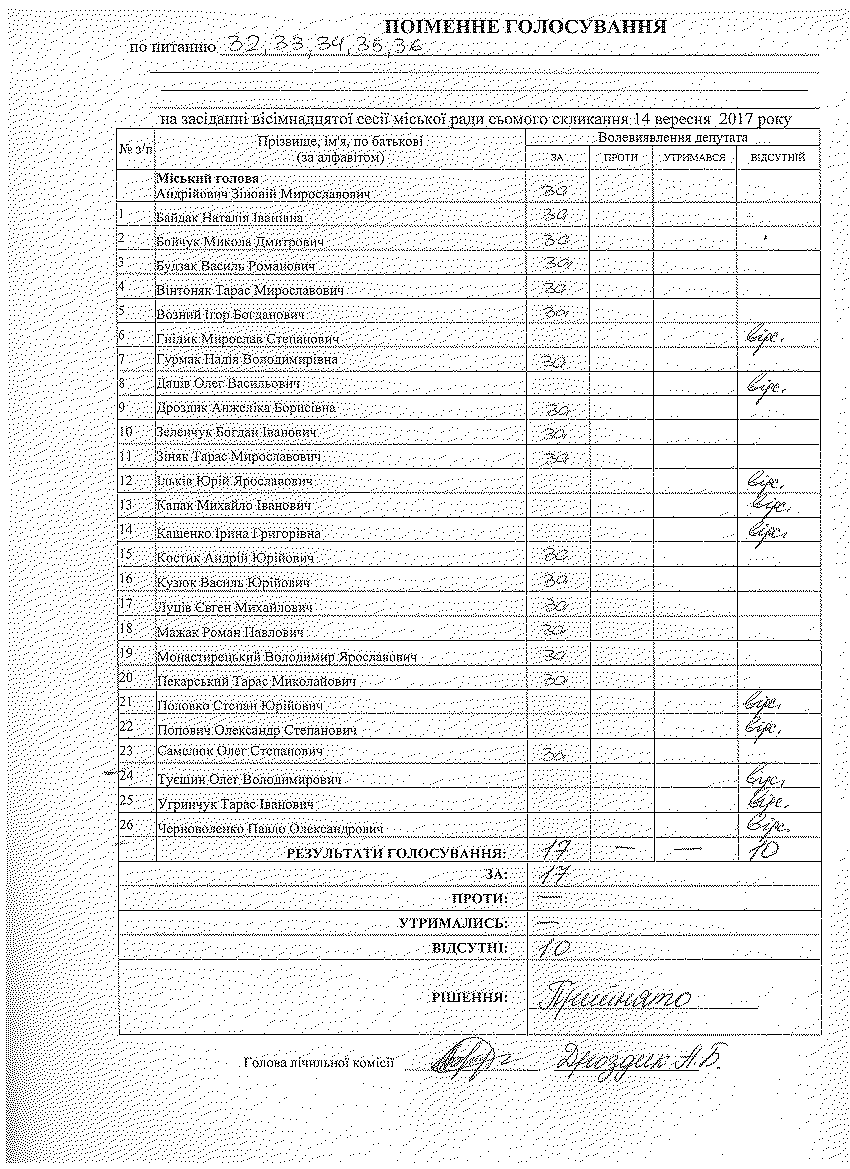 ПОІМЕННЕ ГОЛОСУВАННЯ
по питанню 32, 33, 34, 35, 36
на засіданні вісімнадцятої сесії міської ради сьомого скликання 14 вересня 2017 року
№ з/п Прізвище, ім'я, по батькові (за алфавітом) Волевиявлення депутата
ЗА ПРОТИ УТРИМАВСЯ ВІДСУТНІЙ
Міський голова
Андрійович Зіновій Мирославович за
1 Байдак Наталія Іванівна за
2 Бойчук Микола Дмитрович за
3 Будзак Василь Романович за
4 Вінтоняк Тарас Мирославович за
5 Возний Ігор Богданович за
6 Гнідик Мирослав Степанович відс.
7 Гурмак Надія Володимирівна за
8 Даців Олег Васильович відс.
9 Дроздик Анжеліка Борисівна за
10 Зеленчук Богдан Іванович за
11 Зіняк Тарас Мирославович за
12 Ільків Юрій Ярославович відс.
13 Капак Михайло Іванович відс.
14 Кащенко Ірина Григорівна відс.
15 Костик Андрій Юрійович за
16 Кузюк Василь Юрійович за
17 Луців Євген Михайлович за
18 Мажак Роман Павлович за
19 Монастирецький Володимир Ярославович за
20 Пекарський Тарас Миколайович за
21 Половко Степан Юрійович відс.
22 Попович Олександр Степанович відс.
23 Самелюк Олег Степанович за
24 Туєшин Олег Володимирович відс.
25 Угринчук Тарас Іванович відс.
26 Черноволенко Павло Олександрович відс.
РЕЗУЛЬТАТИ ГОЛОСУВАННЯ: 17 — — 10
ЗА: 17
ПРОТИ: —
УТРИМАЛИСЬ: —
ВІДСУТНІ: 10
РІШЕННЯ: Прийнято
Голова лічильної комісії Дроздик А.Б.